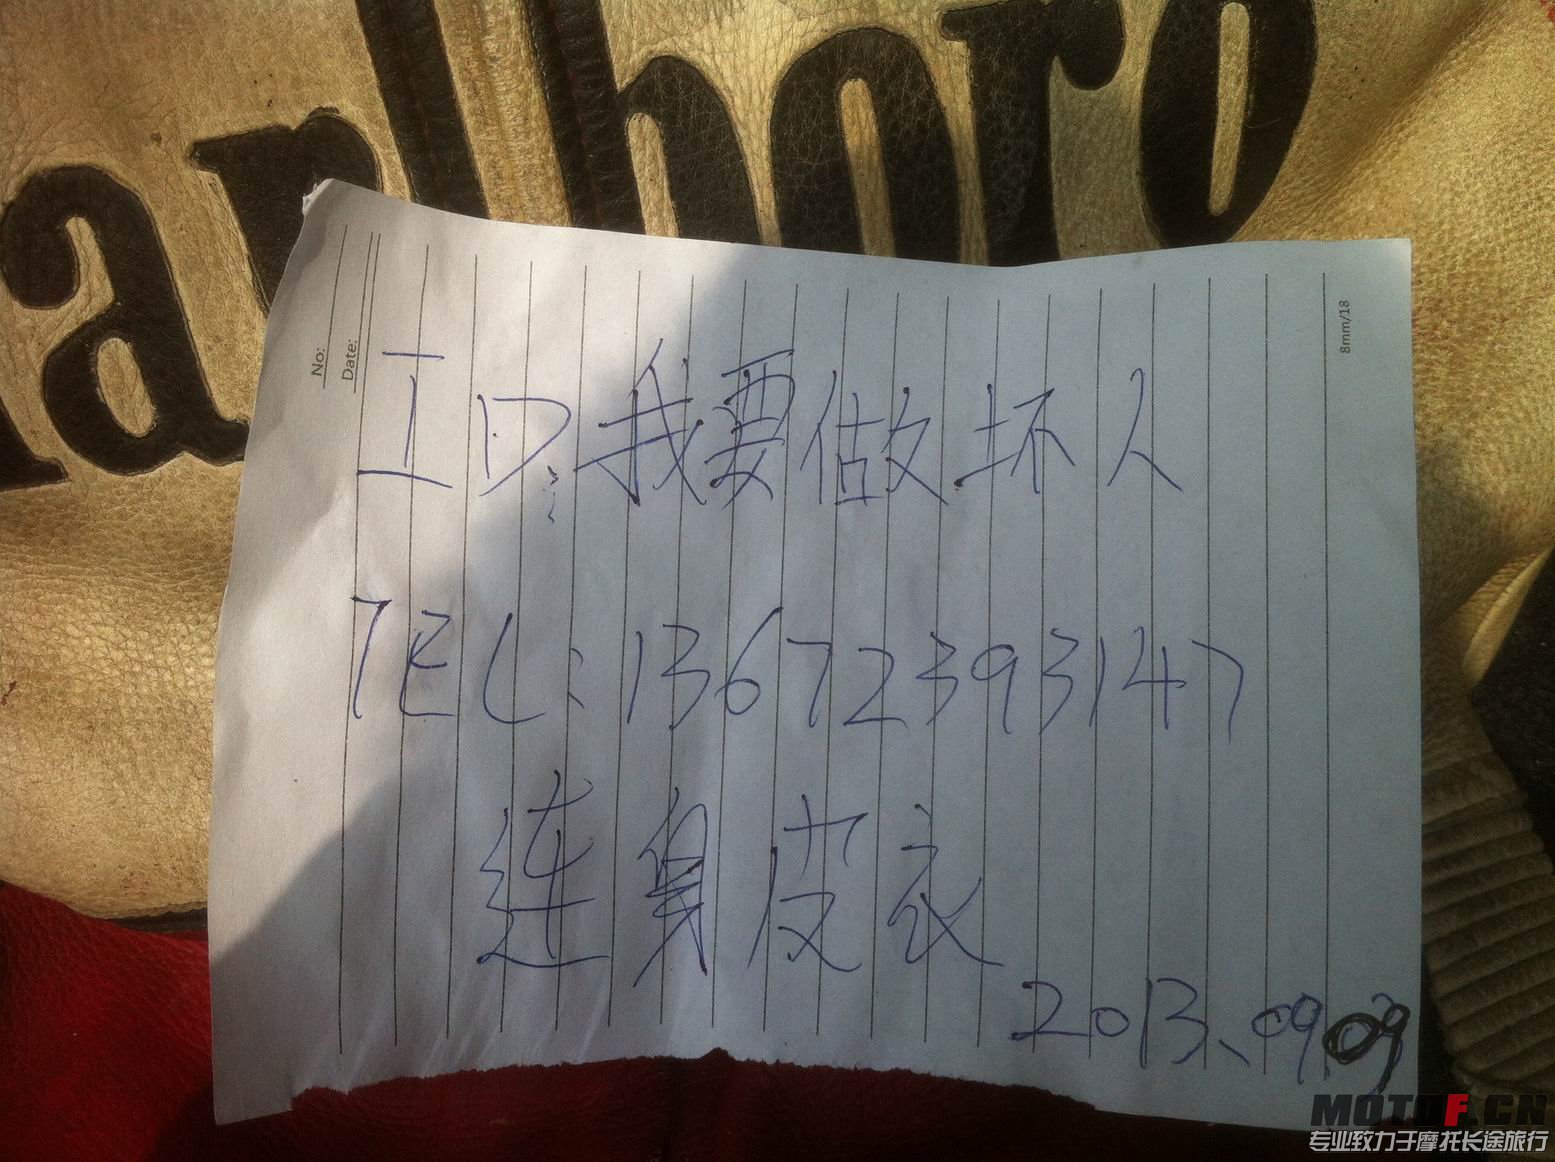 Marlboro
No:
Date:
8mm/18
ID:我要做坏人
TEL:13672393147
连身皮衣
2013、09.09
MOTOF.CN
专业致力于摩托长途旅行